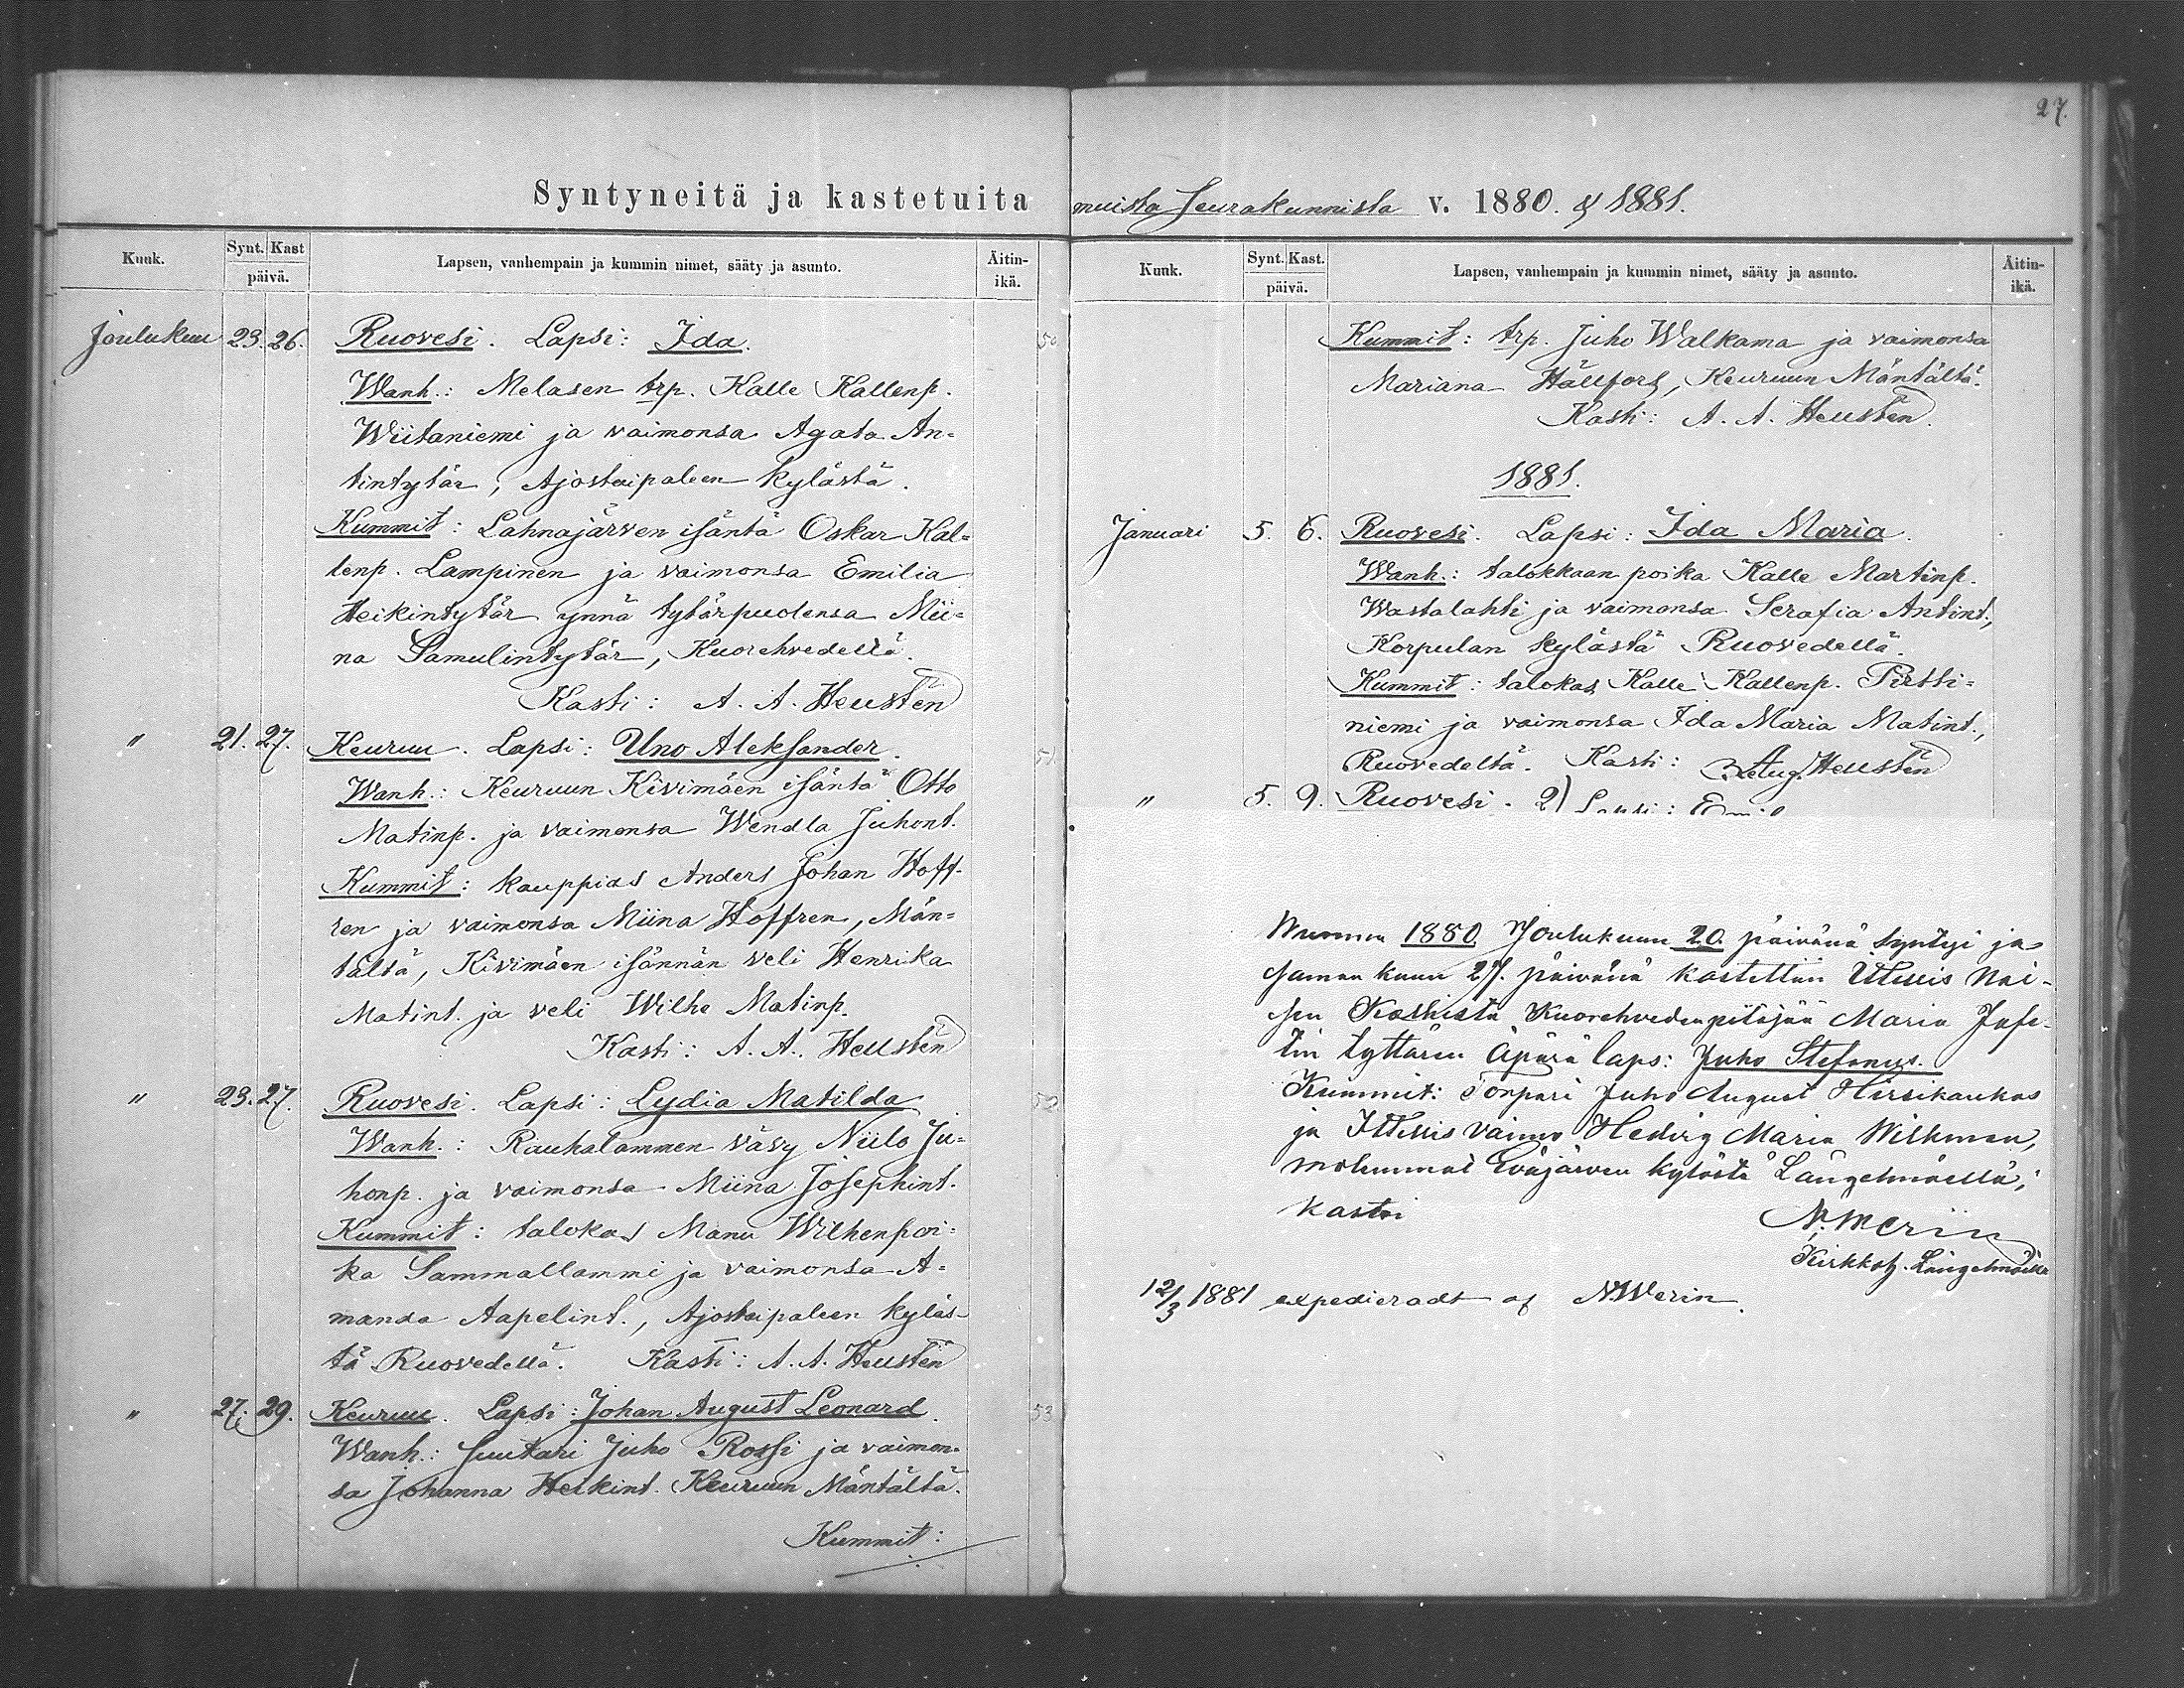 27.
Syntyneitä ja kastetuita muista seurakunnista v. 1880. & 1881.
Kuuk.
Synt. Kast
päivä.
Lapsen, vanhempain ja kummin nimet, sääty ja asunto.
Äitin-
ikä.
Joulukuu 23. 26. Ruovesi. Lapsi: Ida. 50
Wanh.: Melasen trp. Kalle Kallenp.
Wiitaniemi ja vaimonsa Agata An=
tintytär, Ajostaipaleen kylästä.
Kummit: Lahnajärven isäntä Oskar Kal=
lenp. Lampinen ja vaimonsa Emilia
Heikintytär ynnä tytärpuolensa Mii=
na Samulintytär, Kuorehvedellä.
Kasti: A. A. Heusten
" 21. 27. Keuruu. Lapsi: Uno Aleksander. 51
Wanh.: Keuruun Kivimäen isäntä Otto
Matinp. ja vaimonsa Wendla Juhont.
Kummit: kauppias Anders Johan Hoff-
ren ja vaimonsa Miina Hoffren, Män=
tältä, Kivimäen isännän veli Henrika
Matint. ja veli Wilhe Matinp.
Kasti: A. A. Heusten
" 23. 27. Ruovesi. Lapsi: Lydia Matilda 52
Wanh.: Rauhalammen vävy Niilo Ju=
honp. ja vaimonsa Miina Josephint.
Kummit: talokas Manu Wilhenpoi=
ka Sammallammi ja vaimonsa A=
manda Aapelint., Ajostaipaleen kyläs-
tä Ruovedellä. Kasti: A. A. Heusten
" 27. 29. Keuruu. Lapsi: Johan August Leonard. 53
Wanh.: Suutari Juho Rossi ja vaimon-
sa Johanna Heikint. Keuruun Mäntältä.
Kummit:
Kuuk.
Synt. Kast.
päivä.
Lapsen, vanhempain ja kummin nimet, sääty ja asunto.
Äitin-
ikä.
Kummit: trp. Juho Walkama ja vaimonsa
Mariana Hällfors, Keuruun Mäntältä.
Kasti: A. A. Heusten.
1881.
Januari 5. 6. Ruovesi. Lapsi: Ida Maria.
Wanh.: talokkaan poika Kalle Martinp.
Wastalahti ja vaimonsa Serafia Antint.,
Korpulan kylästä Ruovedellä.
Kummit: talokas Kalle Kallenp. Pirtti=
niemi ja vaimonsa Ida Maria Matint.,
Ruovedeltä. Kasti: Aug. Heusten
" 5. 9. Ruovesi. 2) Lapsi: Emil
Wuonna 1880. Joulukuun 20. päivänä syntyi ja
saman kuun 27. päivänä kastettiin Itellis nai-
sen Kuorehveden pitäjää Maria Jafe-
tin tyttären äpärä laps: Juho Stefanus.
Kummit: Torpari Juho August Hirsikaukas
ja Itellis vaimo Hedvig Maria Wilkman,
molemmat Eväjärven kylästä Längelmäellä;
kastoi
N. Merin
Kirkkoh. Längelmäellä
12/3 1881 expedieradt af N Merin.